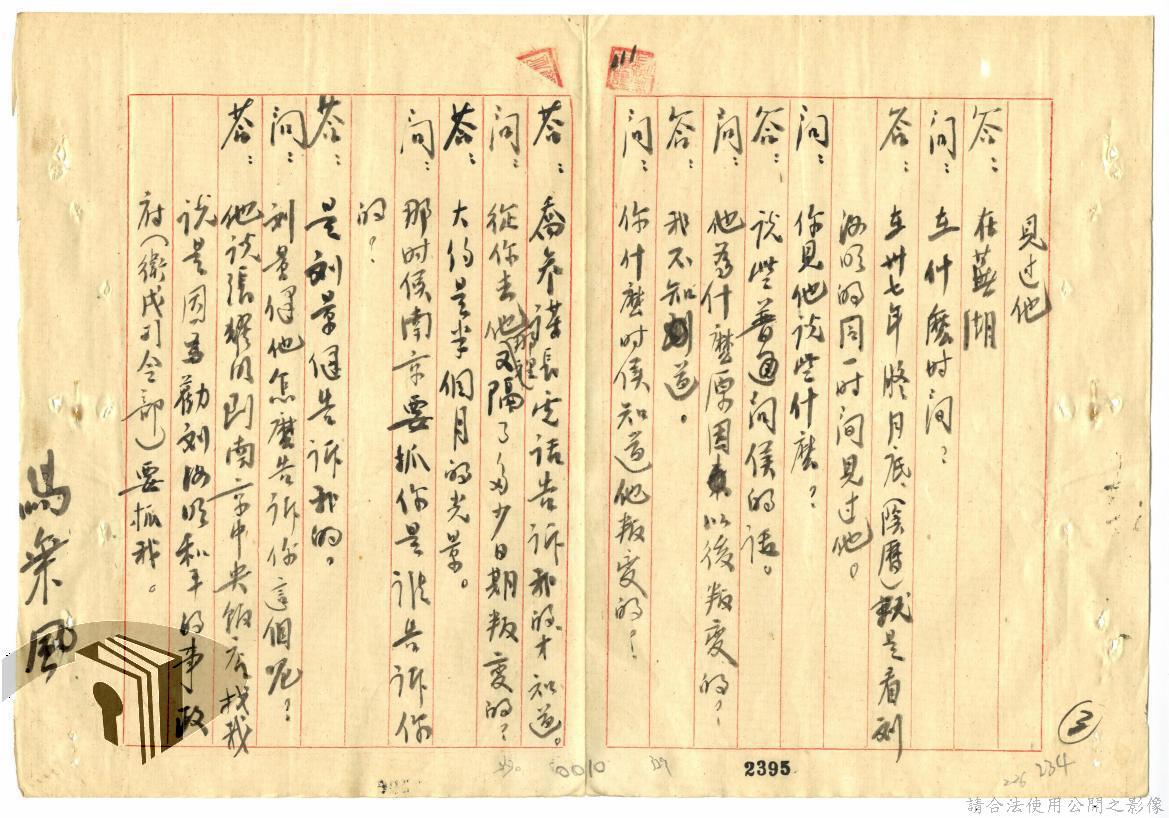 見过他
答：在蕪湖
问：在什麽时间？
答：在卅七年臘月底（陰曆）就是看刘
汝明的同一时间見过他。
问：你見他说些什麽？
答：说些普通问候的话。
问：他為什麽原因以後叛变的？
答：我不知道。
问：你什麽时候知道他叛变的？
答：喬參謀長電话告诉我的才知道。
问：從你去他那裡又隔了多少日期叛变的？
答：大约是半個月的光景。
问：那时候南京要抓你是谁告诉你
的？
答：是刘景健告诉我的。
问：刘景健他怎麽告诉你這個呢？
答：他说張耀明到南京中央飯店找我
说是因為勸刘汝明和平的事政
府（衛戍司令部）要抓我。
風
3
2395
0010
226 234
請合法使用公開之影像